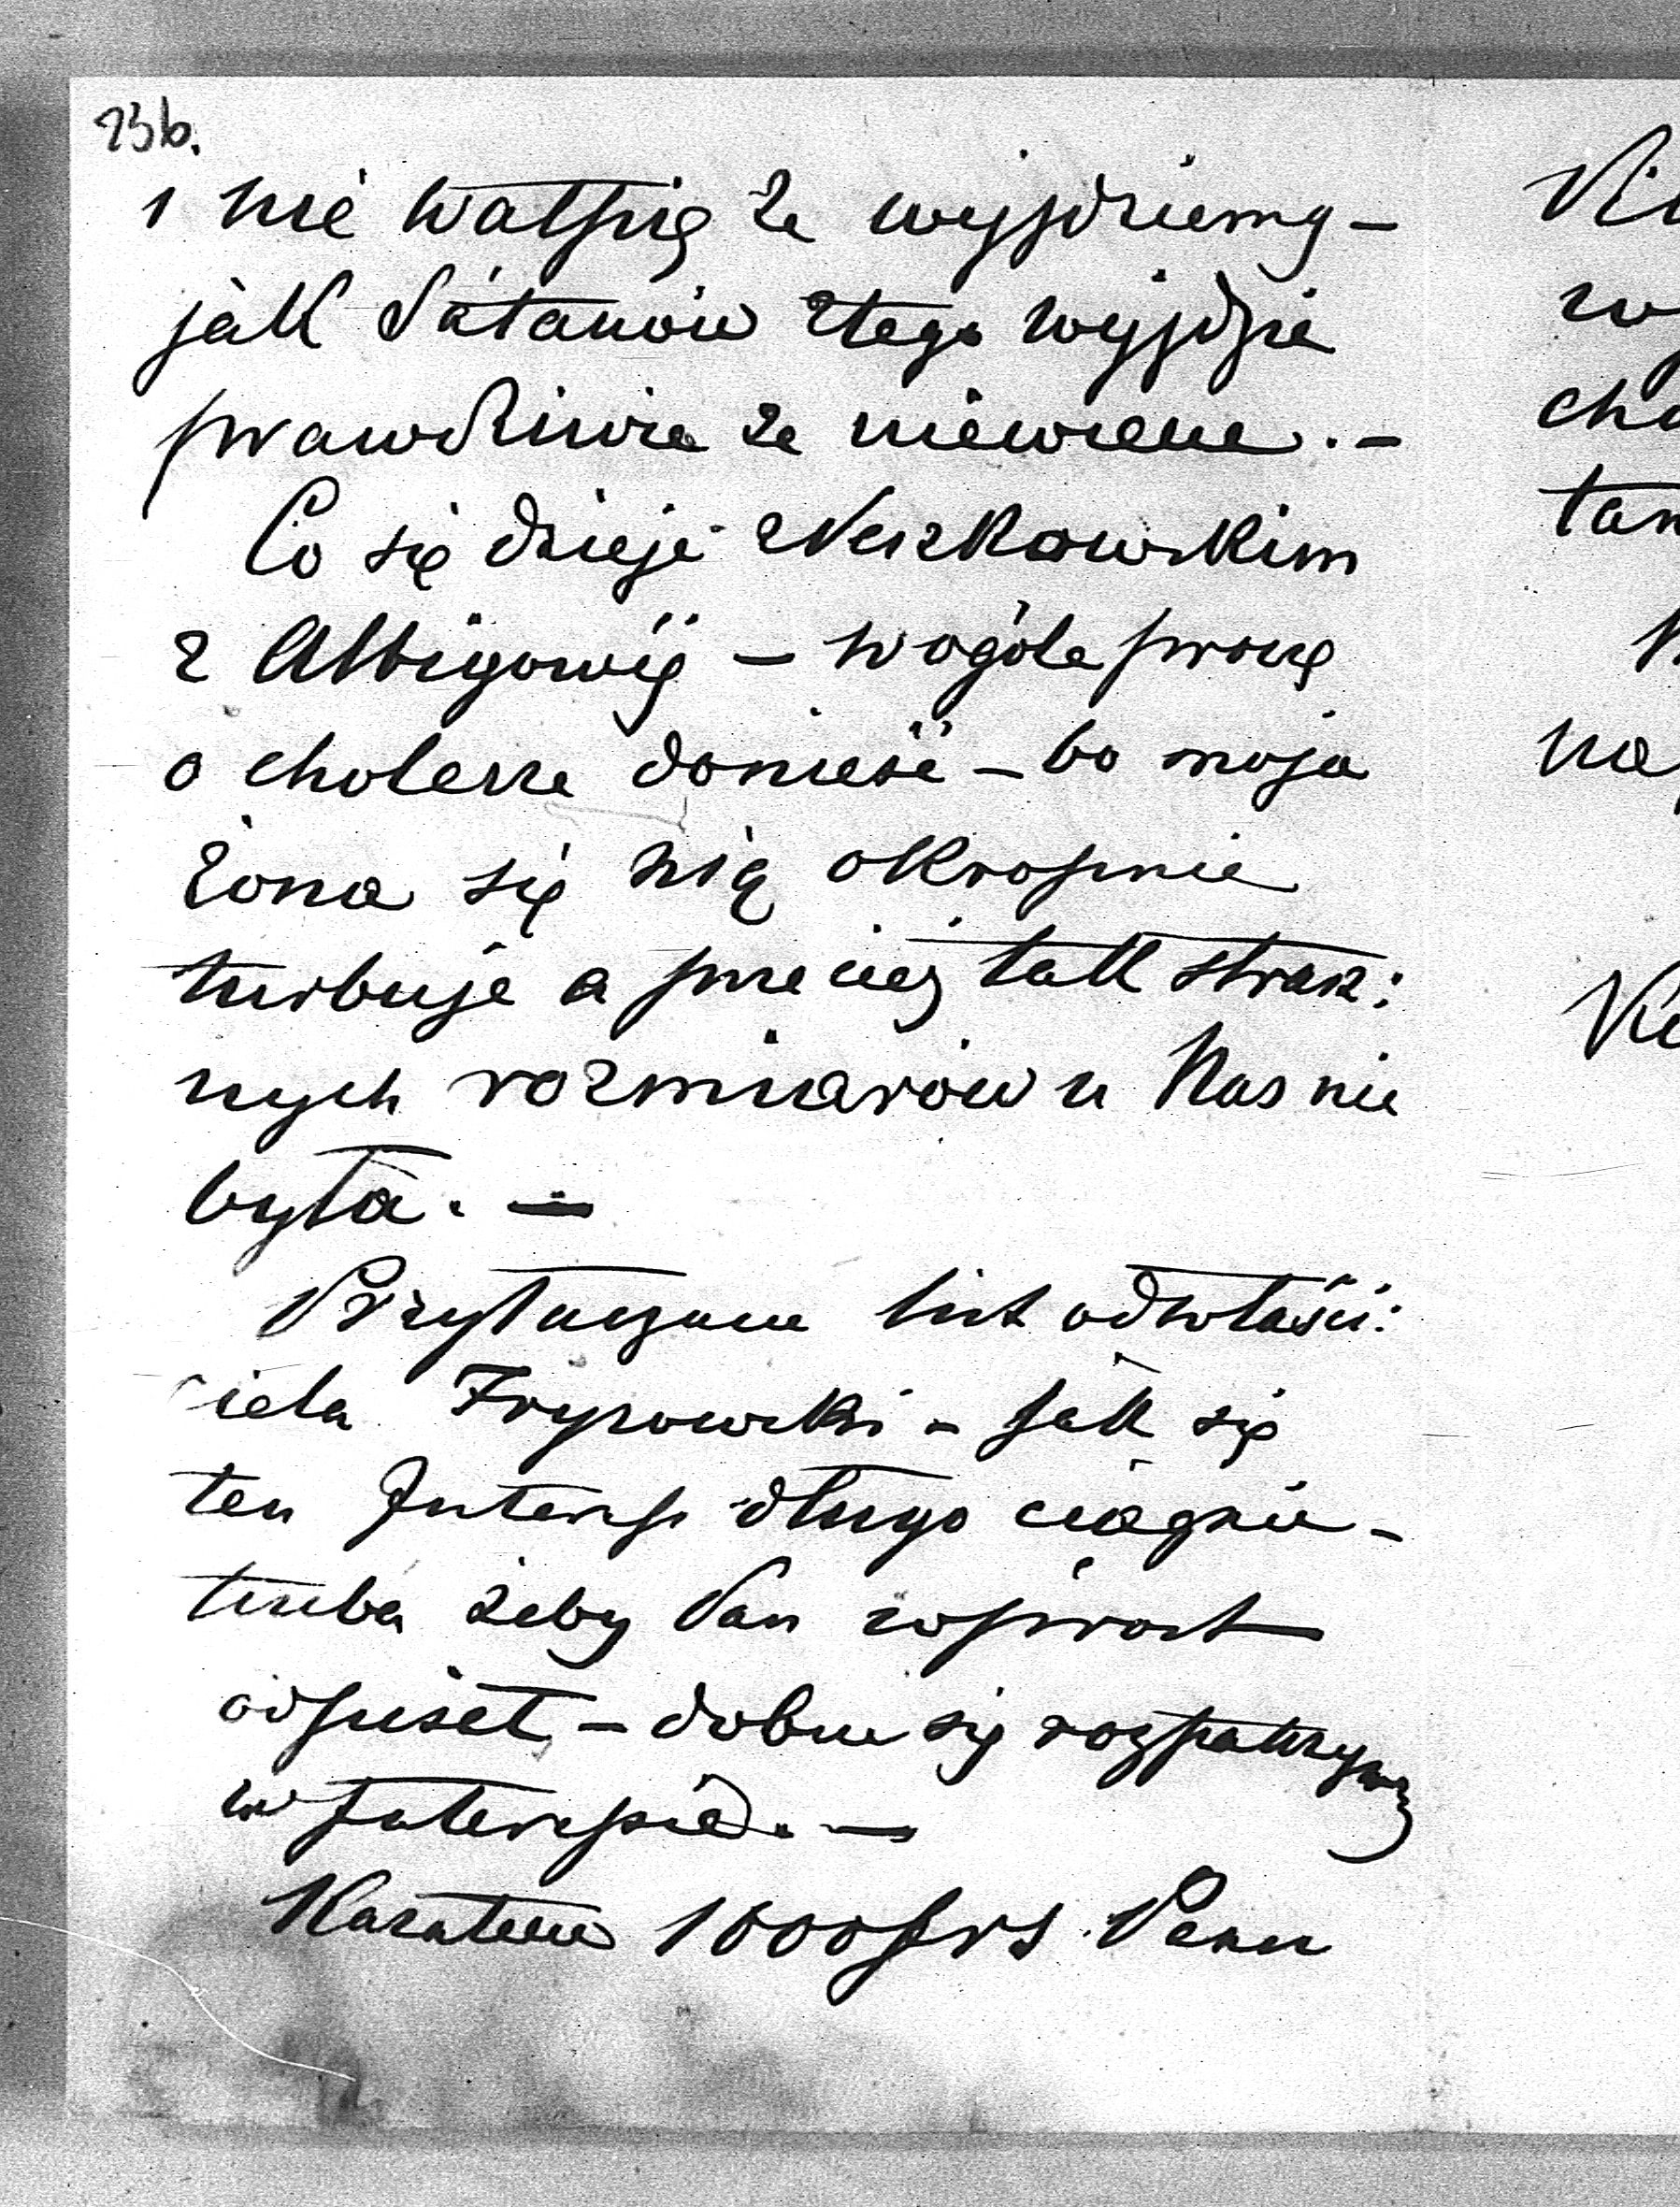 23b.
i nie wątpię że wyjdziemy –
jak Satanów z tego wyjdzie
prawdziwie że niewiem. –
Co się dzieje z Neszkowskim
z Albigowij – wogóle proszę
o cholerze donieść – bo moja
żona się nią okropnie
turbuje a przeciej tak strasz:
nych rozmiarów u Nas nie
była. –
Przytaczam list od właści:
ciela Fryzowski – jak się
ten Interess długo ciągnie –
trzeba żeby Pan wprost
odpisał – dobrze się rozpatrzywszy
w Interessie. –
Kazałem 1000 frs Panu